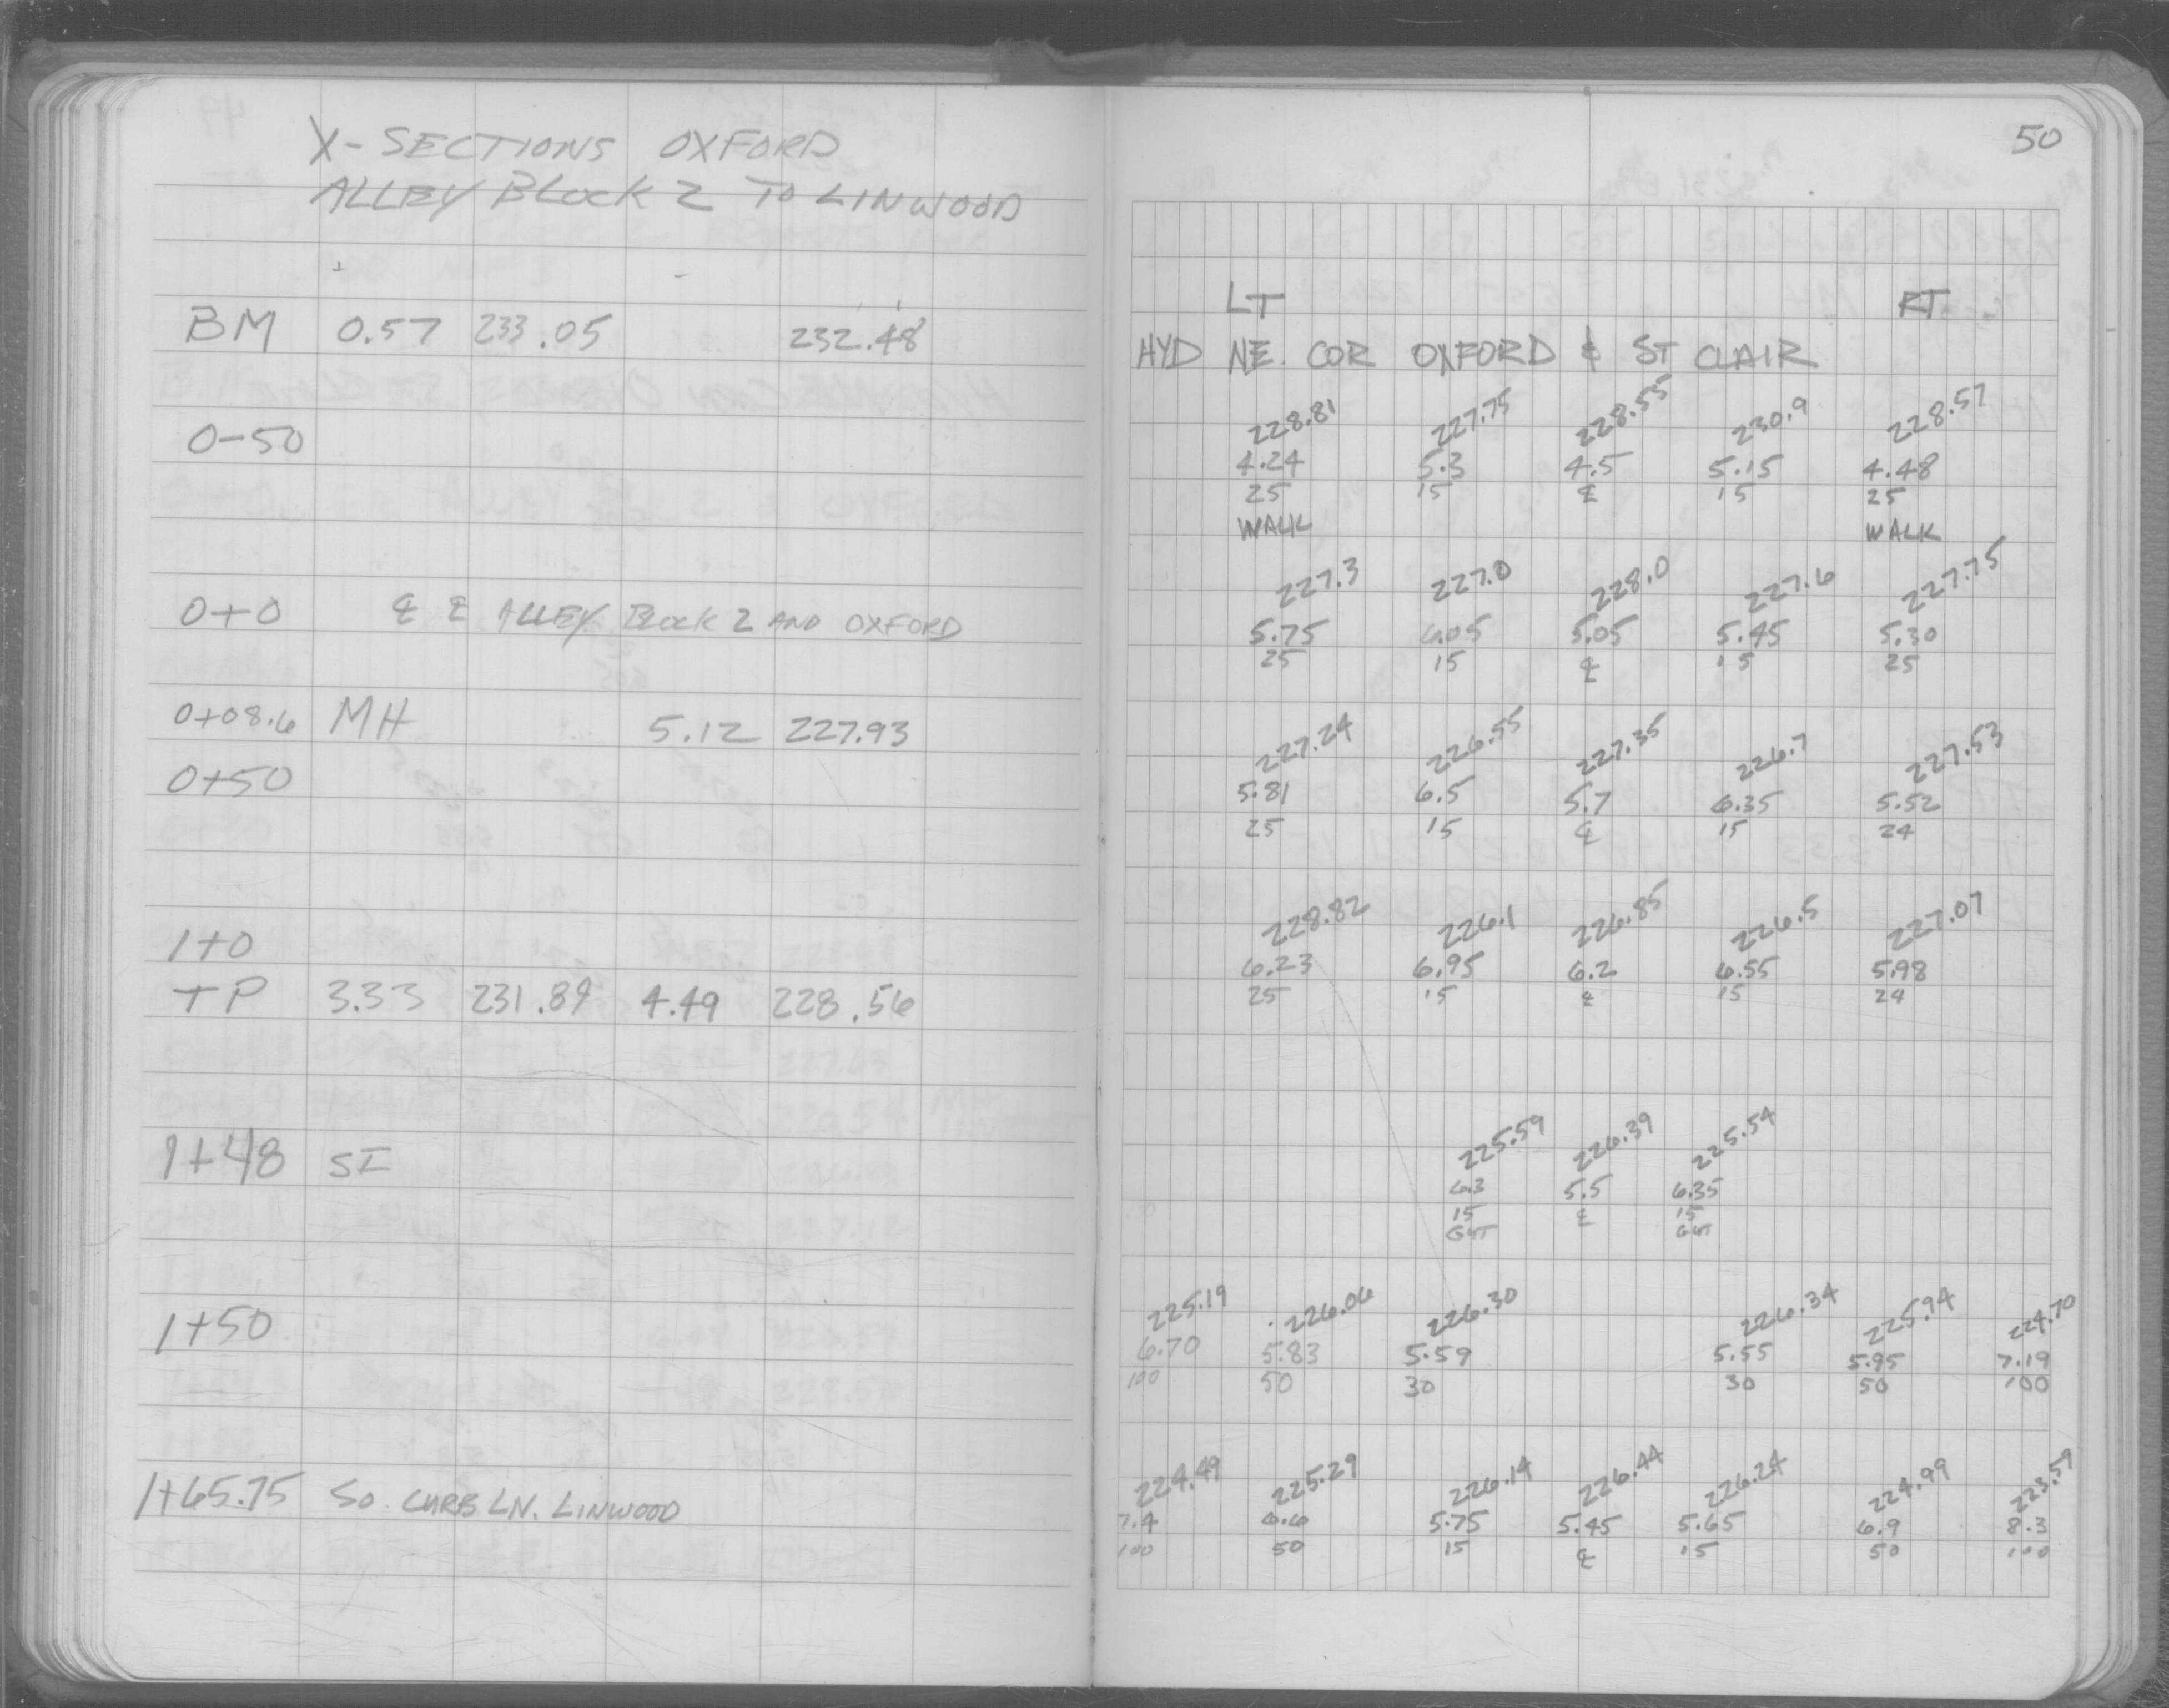 X-SECTIONS OXFORD
ALLEY BLOCK 2 TO LINWOOD
+ -
BM 0.57 233.05 232.48
0-50
0+0 ℄ ℄ ALLEY BLOCK 2 AND OXFORD
0+08.6 MH 5.12 227.93
0+50
1+0
TP 3.33 231.89 4.49 228.56
1+48 SI
1+50
1+65.75 SO. CURB LN. LINWOOD
50
LT RT
HYD NE. COR OXFORD & ST CLAIR
228.81 227.75 228.55 230.9 228.57
4.24 5.3 4.5 5.15 4.48
25 15 ℄ 15 25
WALK WALK
227.3 227.0 228.0 227.6 227.75
5.75 6.05 5.05 5.45 5.30
25 15 ℄ 15 25
227.24 226.55 227.35 226.7 227.53
5.81 6.5 5.7 6.35 5.52
25 15 ℄ 15 24
228.82 226.1 226.85 226.5 227.07
6.23 6.95 6.2 6.55 5.98
25 15 ℄ 15 24
225.59 226.39 225.54
6.3 5.5 6.35
15 ℄ 15
GUT GUT
225.19 226.06 226.30 226.34 225.94 224.70
6.70 5.83 5.59 5.55 5.95 7.19
100 50 30 30 50 100
224.49 225.29 226.14 226.44 226.24 224.99 223.59
7.4 6.6 5.75 5.45 5.65 6.9 8.3
100 50 15 ℄ 15 50 100